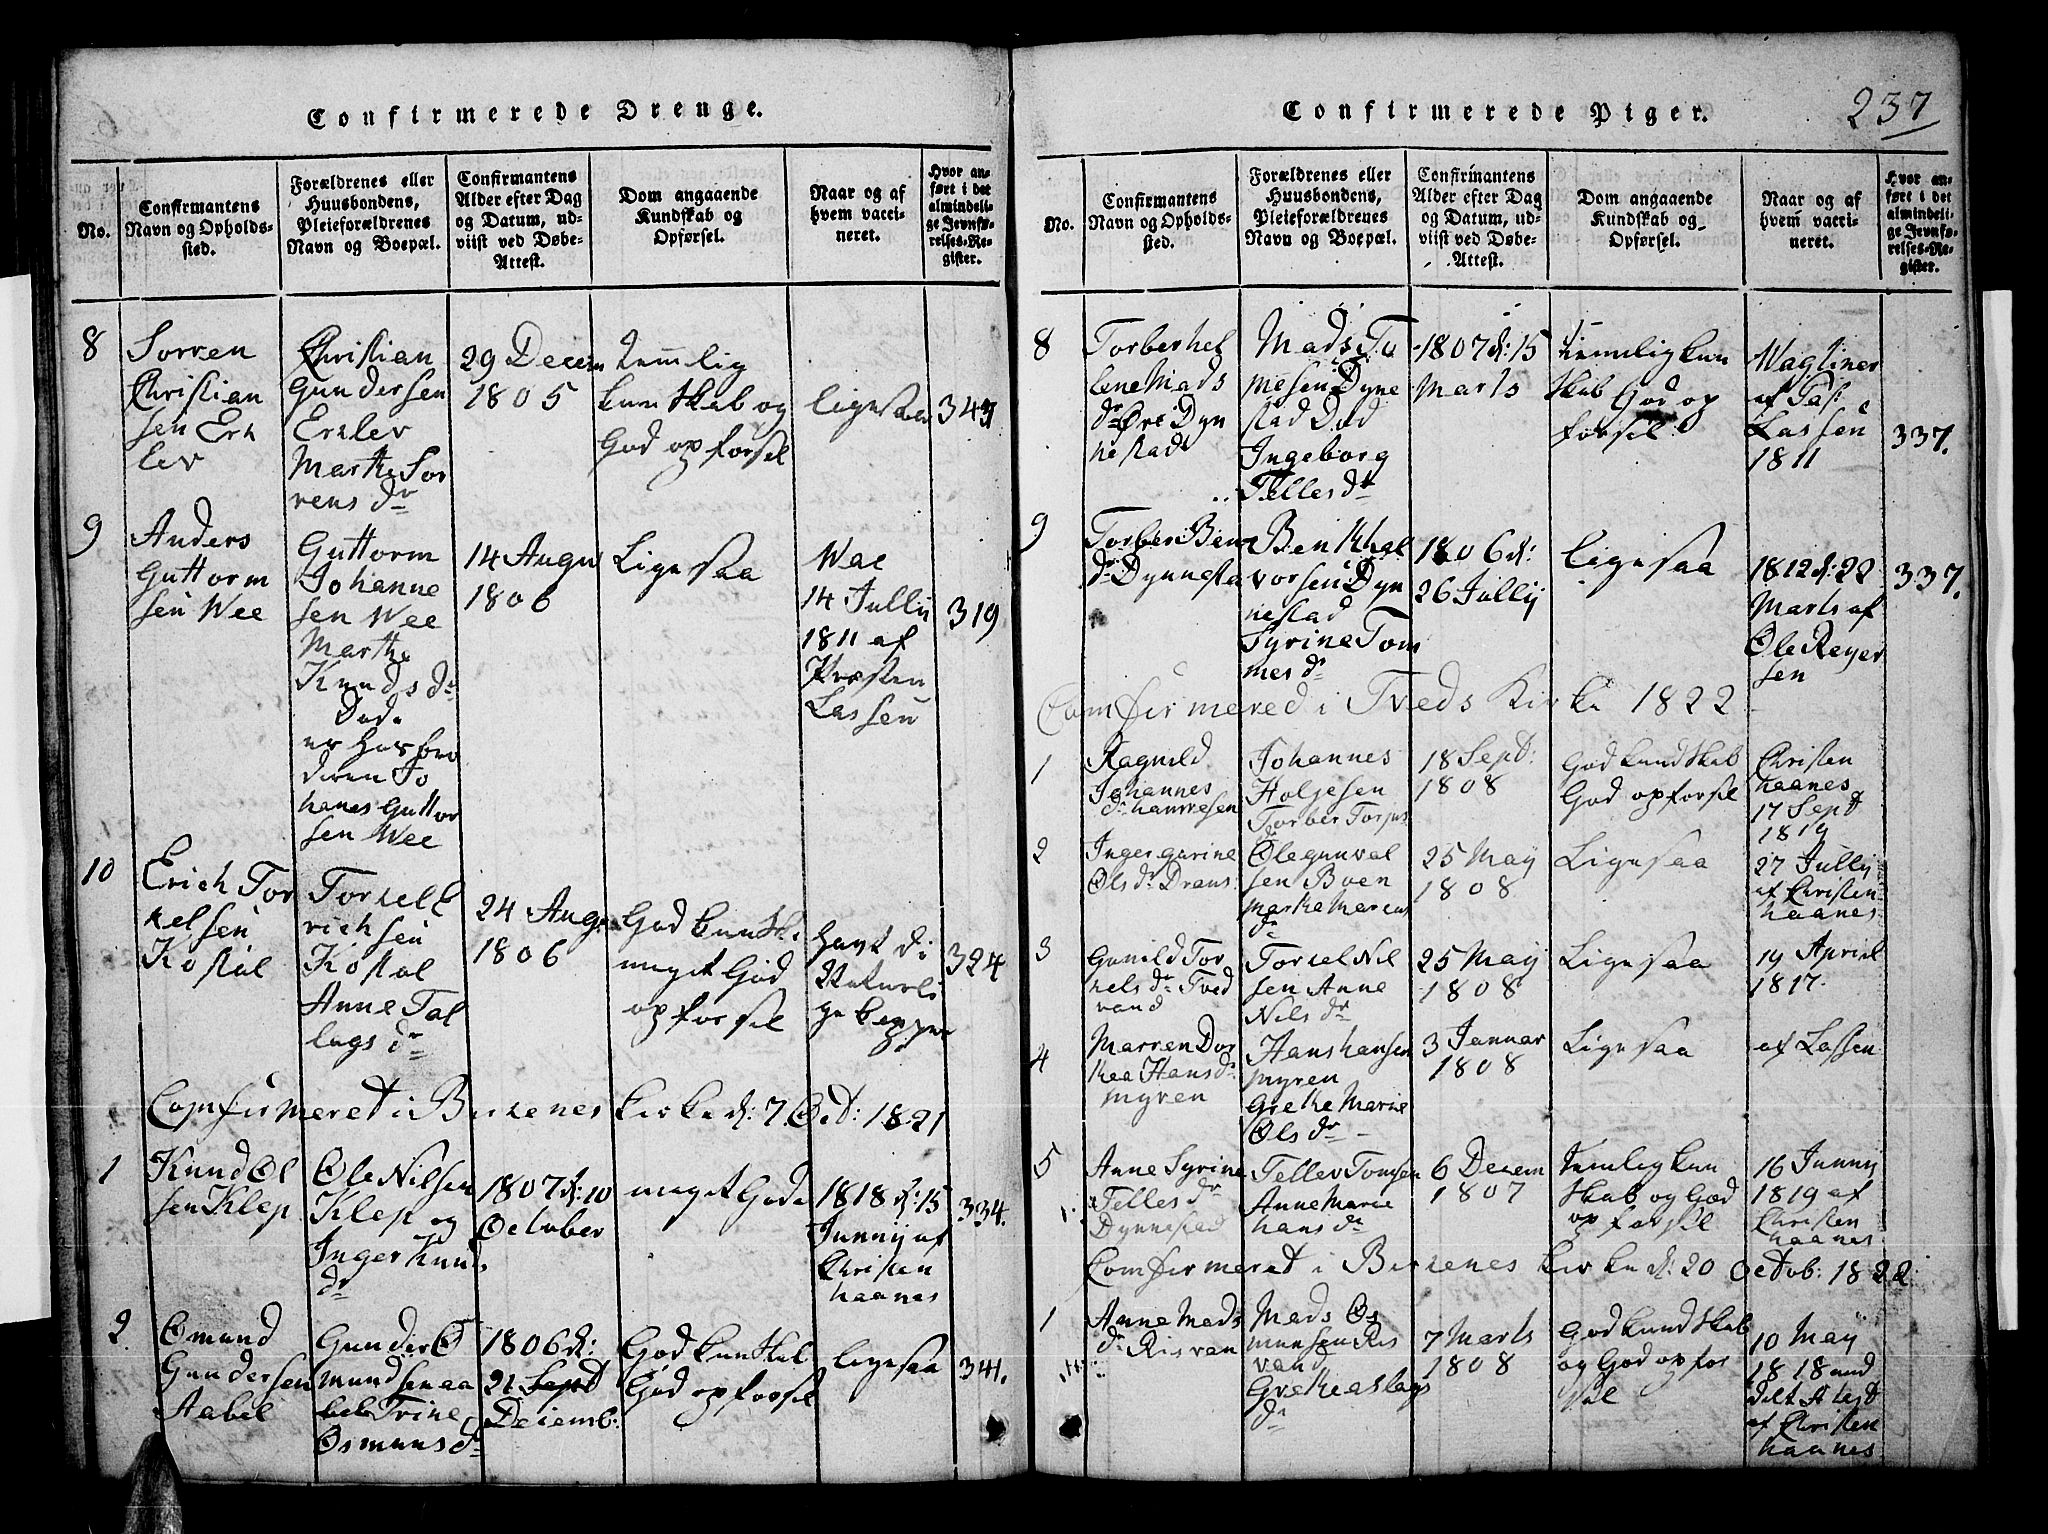 Confirmerede Drenge.
No.
Confirmantens
Navn og Opholds-
sted.
Forældrenes eller
Huusbondens,
Pleieforældrenes
Navn og Boepæl.
Confirmantens
Alder efter Dag
og Datum, ud-
viist ved Døbe-
Attest.
Dom angaaende
Kundskab og
Opførsel.
Naar og af
hvem vacci-
neret.
Hvor an-
ført i det
almindeli-
ge Jevnfø-
relses-Re-
gister.
8
Sorren
Christian
sen Erk
lev
Christian
Gundersen
Erklev
Marthe Sor
rens dr
29 Decem
1805
temlig
kunskab og
God opforsel
ligesaa
343
9
Anders
Guttorm
sen Wee
Guttorm
Johanne
sen Wee
Marthe
Knuds dr
Døde
er hos bro
deren Jo
hanes Guttor
sen Wee
14 Augu
1806
Ligesaa
Wac
14 Jullij
1811 af
Præsten
Lassen
319
10
Erich Tor
kelsen
Kostøl
Torkel E
richsen
Kostøl
Anne Tal
lags dr
24 Aug
1806
God kunsk:
meget God
opforsel
havt di
Naturli
ge kopper
324
Comfirmeret i Birkenes kirke d: 7 Oct: 1821
1
Knud Ol
sen Klep
Ole Nilsen
Klep og
Inger Knuds
dr
1807 d: 10
October
meget Gode
1818 d: 15
Junnij af
Christen
haanes
334.
2
Omund
Gundersen
Aabel
Gunder O
mundsen aa
bel Trine
Osmuns dr
1806 d:
21 Sept
Decemb:
God kunskab
God opforsel
ligesaa
341.
Confirmerede Piger.
237
No.
Confirmantens
Navn og Opholds-
sted.
Forældrenes eller
Huusbondens,
Pleieforældrenes
Navn og Boepæl.
Confirmantens
Alder efter Dag
og Datum, ud-
viist ved Døbe-
Attest.
Dom angaaende
Kundskab og
Opførsel.
Naar og af
hvem vacci-
neret.
Hvor an-
ført i det
almindeli-
ge Jevnfø-
relses-Re-
gister.
8
Torber hel
lene Mads
dr Øvre Dyn
nestad
Mads To
mesen Dyne
stad Død
Ingeborg
Telles dr
1807 d: 15
Marts
temelig kun
skab God op
forsel
Wagliner
af Pas:
Lassen
1811
337.
9
Torber Ben
dr Dynnesta
Bent Hal
vorsen Dyn
nestad
Syrine Tom
mes dr
1806 d:
26 Jullij
ligesaa
1812 d: 22
Marts af
Ole Reyer
sen
337.
Comfirmered i Tveds Kirke 1822
1
Ragnild
Johannes
dr hanvesen
Johannes
Holjesen
Torber Torjus
dr
18 Sept:
1808
God kundskab
God opforsel
Christen
haanes
17 Sept
1819
2
Inger gurine
Ols dr Drans
Ole gunval
sen Boen
Marthe Marens
dr
25 Maij
1808
Ligesaa
27 Jullij
af Christen
haanes
3
Gunild Tor
kels dr Tved
vand
Torkel Nil
sen Anne
Nils dr
25 Maij
1808
Ligesaa
19 Apriel
1817.
4
Marren Dor
thea Hans dr
myren
Hans hansen
myren
Grethe Marie
Ols dr
3 Januar
1808
Ligesaa
af Lassen
5
Anne Syrine
Telles dr
Dynnestad
Tellev Tomsen
Anne Marie
hans dr
6 Decem
1807
temlig kun
skab og God
opforsel
16 Junny
1819 af
Christen
haanes
Comfirmeret i Birkenes kirke d: 20 Octob: 1822
1
Anne Mads
dr Risvan
Mads Os
munsen Ris
vand
Grethe aslags
dr
7 Marts
1808
God kundskab
og God opfor
sel
10 Maij
1818 und
delt Atest
af Christen
haanes